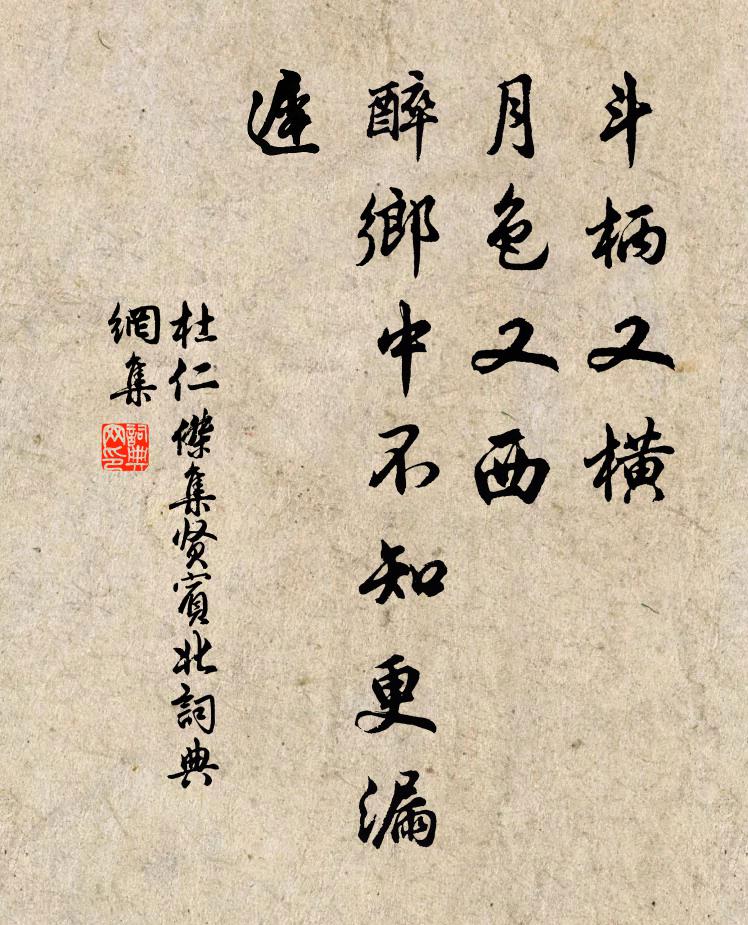 斗柄又橫
月色又西
醉鄉中不知更漏
遲
杜仁傑集贤賓北詞典
網集
詞典
网印